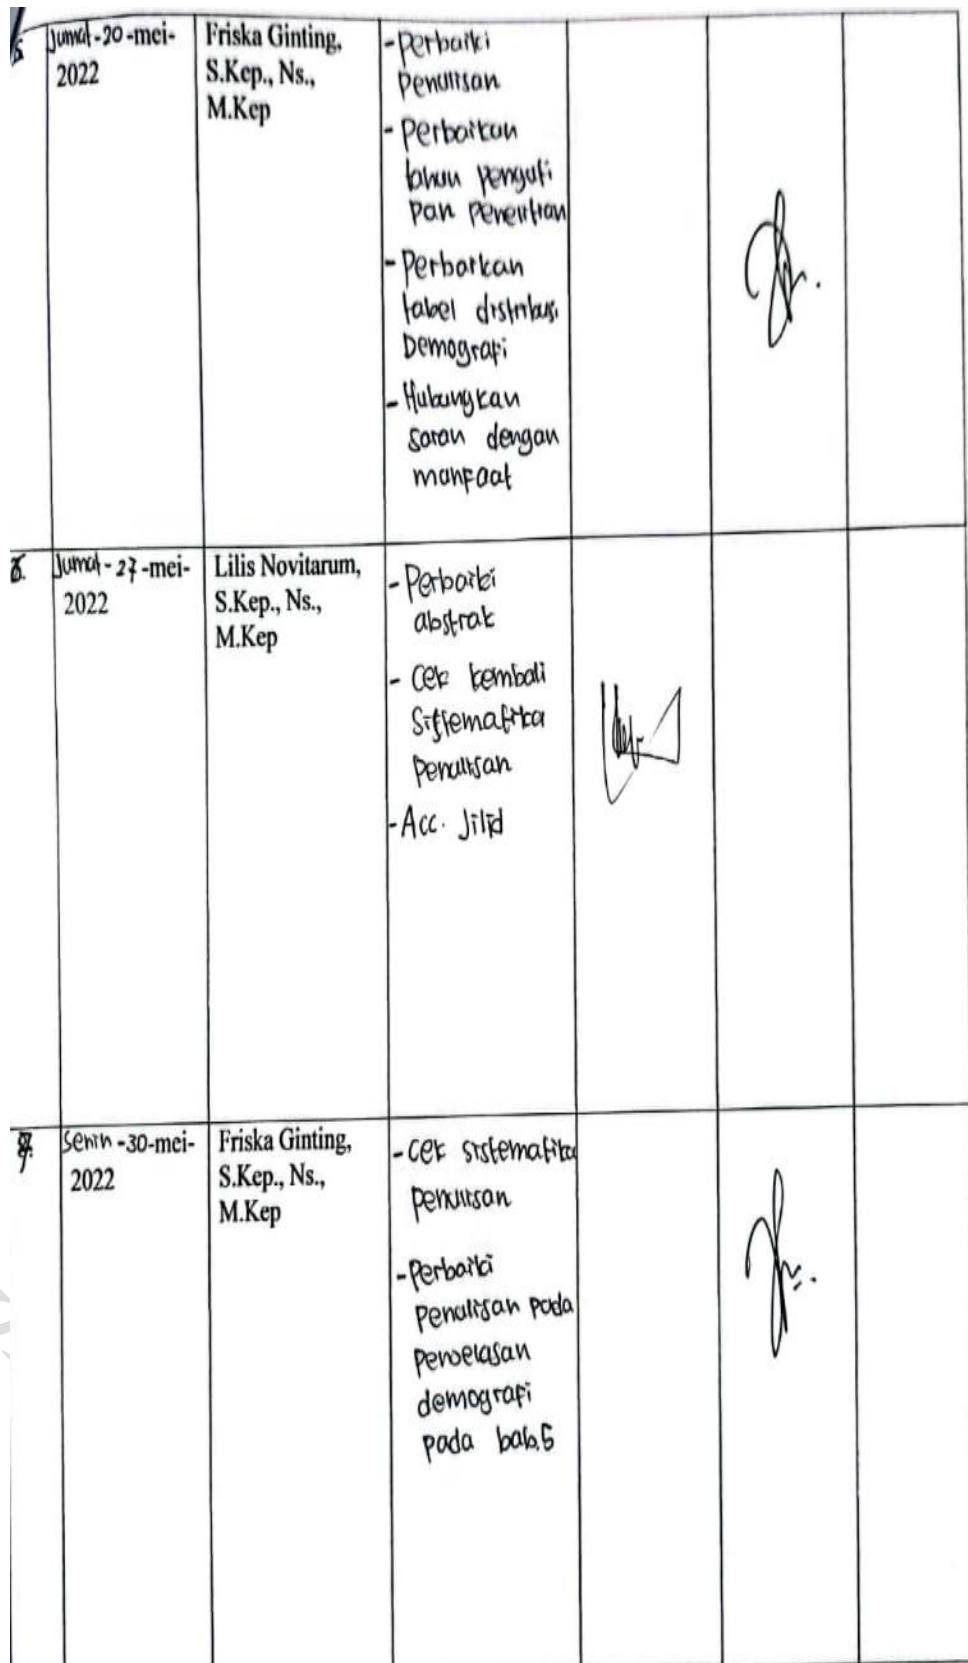 Jumat-20-mei-
2022
Friska Ginting,
S.Kep., Ns.,
M.Kep
-Perbaiki
Penulisan
- Perbaikan
tahun penguti
pan penelitian
- Perbaikan
tabel distribusi
Demografi
- Hubungkan
saran dengan
manfaat
Jumat-27-mei-
2022
Lilis Novitarum,
S.Kep., Ns.,
M.Kep
-Perbaiki
abstrak
- Cek kembali
Sistematika
penulisan
-Acc. Jilid
Senin-30-mei-
2022
Friska Ginting,
S.Kep., Ns.,
M.Kep
-Cek sistematika
penulisan
-Perbaiki
Penulisan pada
demografi
pada bab.5